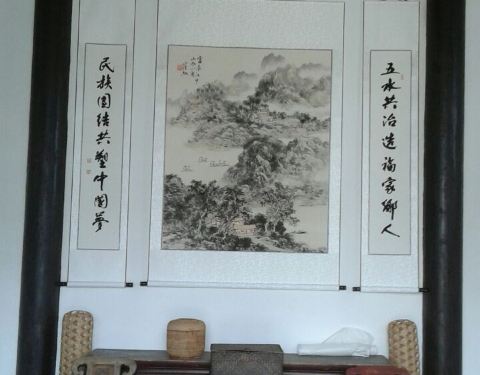 五水共治造福家乡人
民族团结共塑中国梦